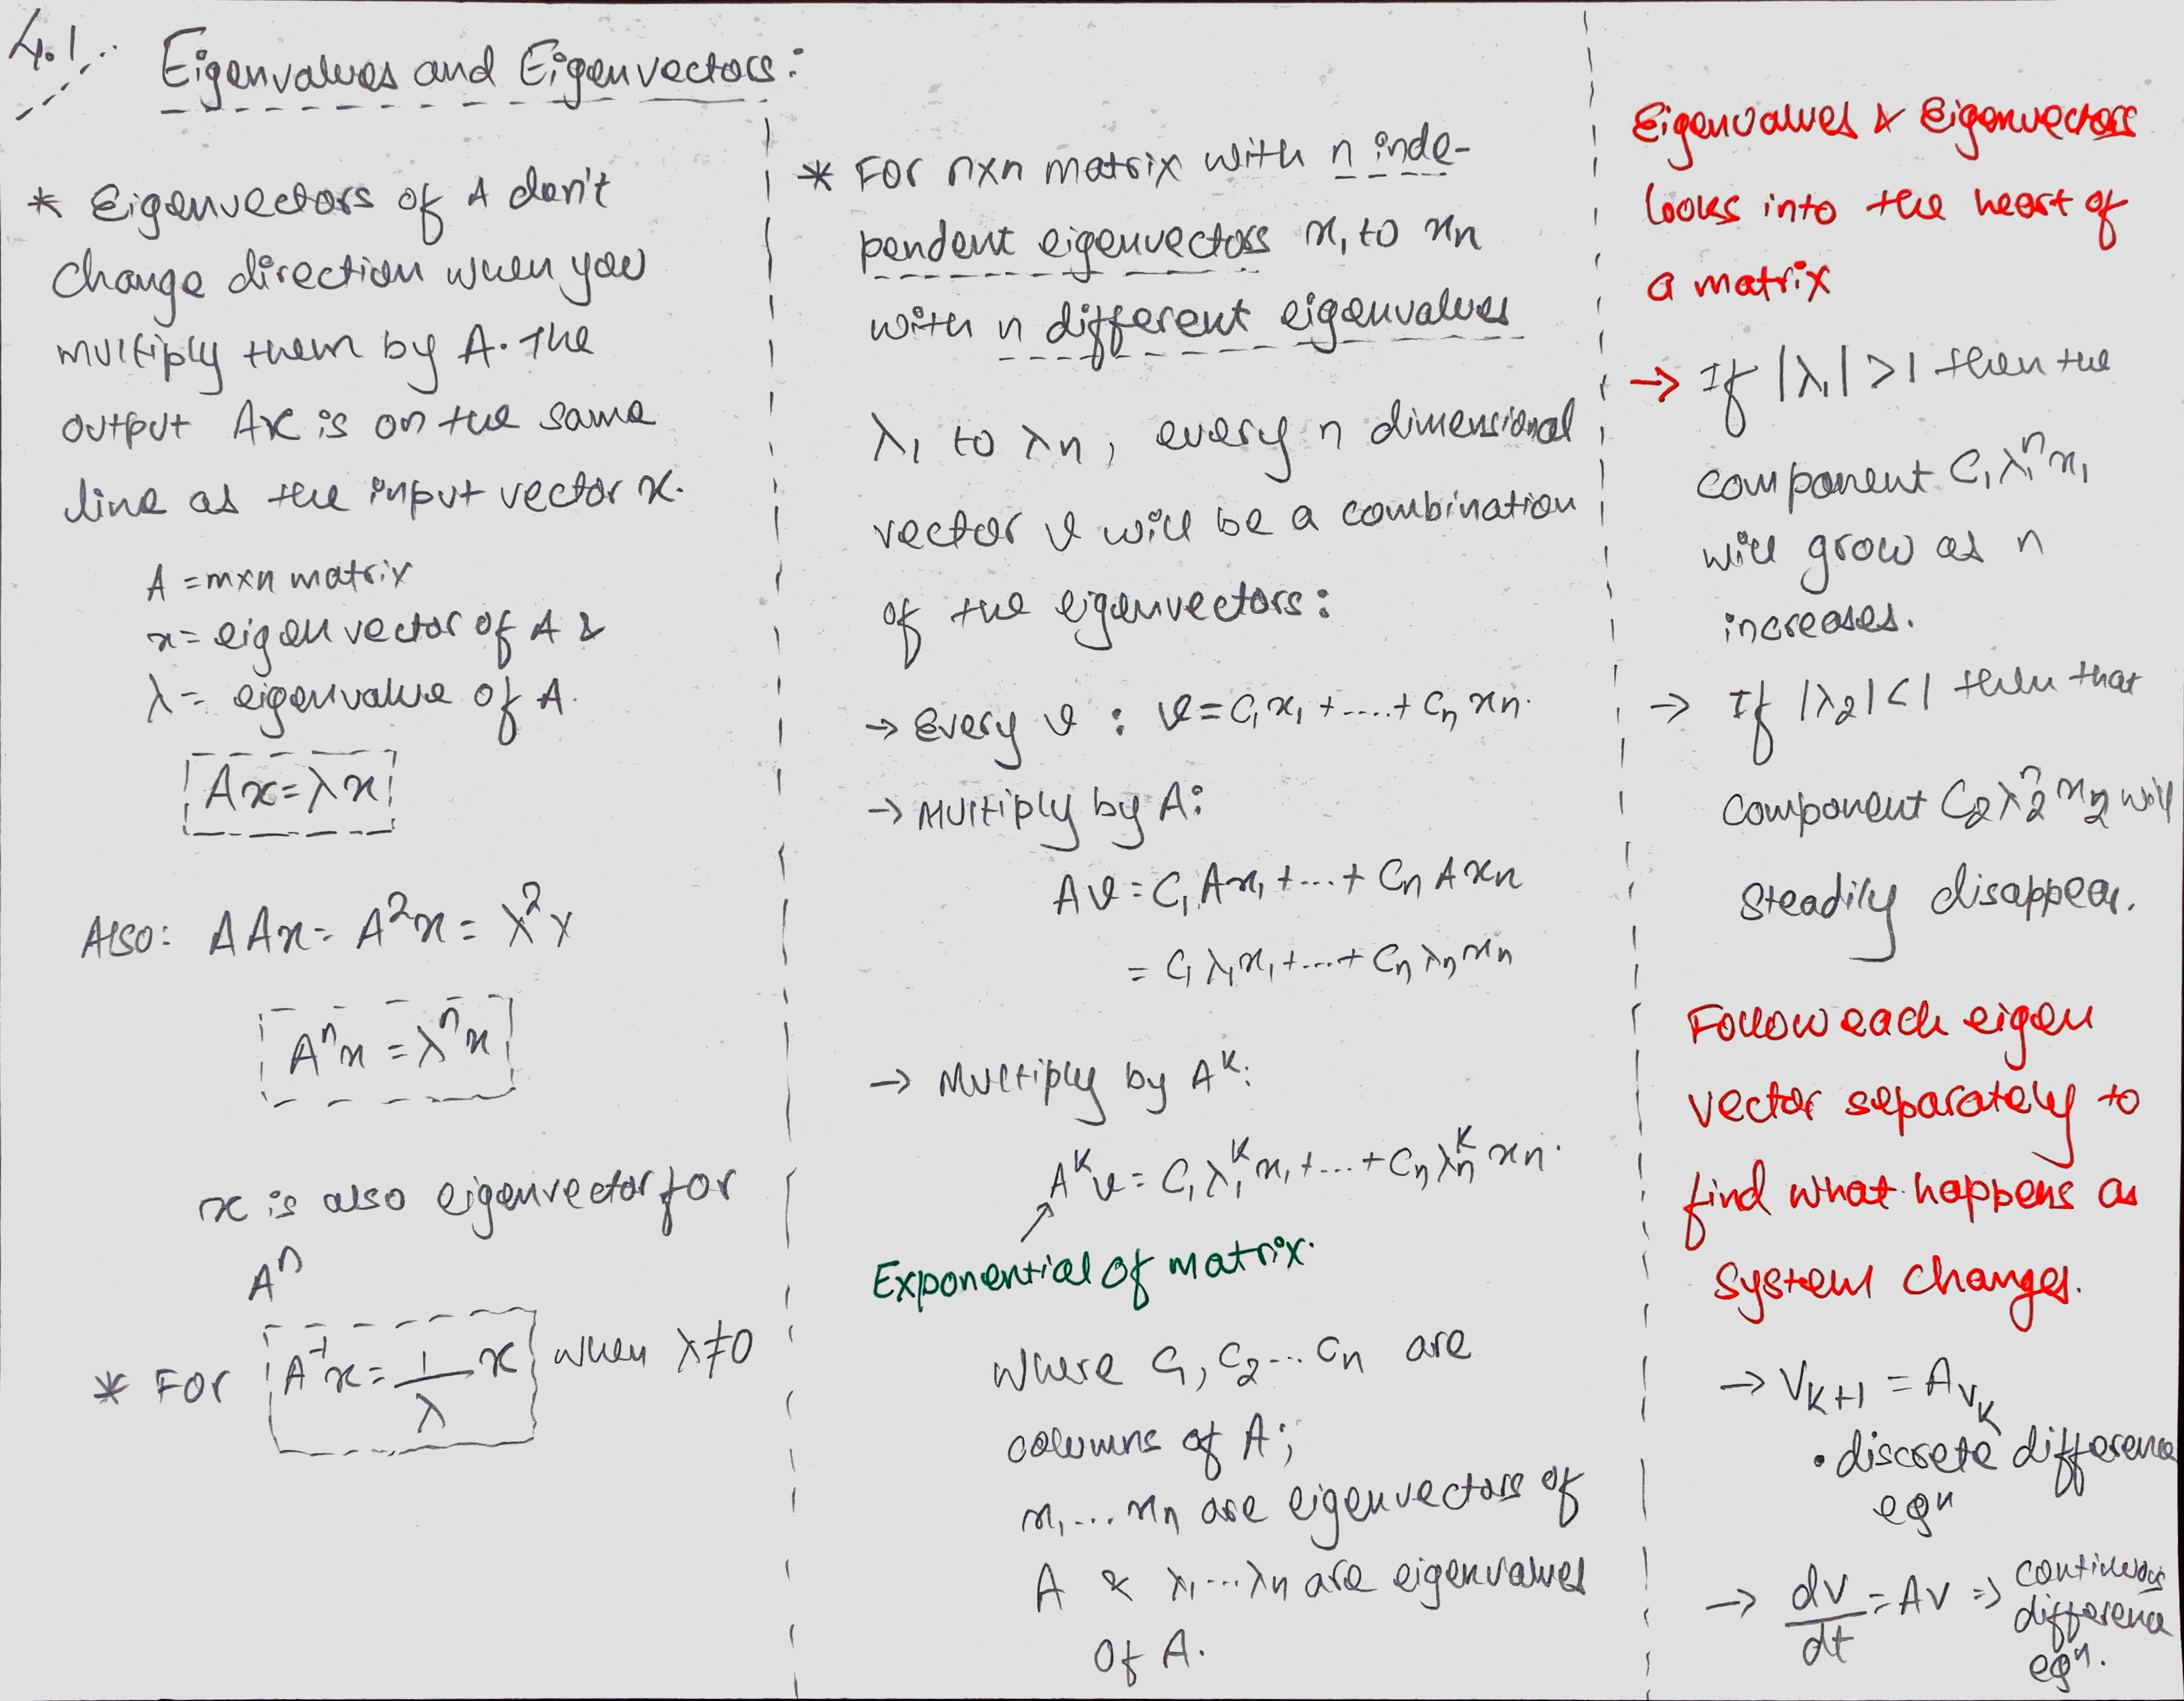 4.1. Eigenvalues and Eigenvectors:
* Eigenvectors of A don't
change direction when you
multiply them by A. The
output Ax is on the same
line as the input vector x.
A = mxn matrix
x = eigen vector of A &
λ = eigenvalue of A.
Ax = λx
Also: AAx = A²x = λ²x
Aⁿx = λⁿx
x is also eigenvector for
Aⁿ
* For A⁻¹x = 1/λ x when λ≠0
* For nxn matrix with n inde-
pendent eigenvectors x₁ to xₙ
with n different eigenvalues
λ₁ to λₙ, every n dimensional
vector v will be a combination
of the eigenvectors:
→ Every v : v = C₁x₁ + ..... + Cₙxₙ.
→ Multiply by A:
Av = C₁Ax₁ + ... + CₙAxₙ
= C₁λ₁x₁ + .... + Cₙλₙxₙ
→ Multiply by Aᴷ:
Aᴷv = C₁λ₁ᴷx₁ + .... + Cₙλₙᴷxₙ.
Exponential of matrix.
where C₁, C₂ ... Cₙ are
columns of A;
x₁ ... xₙ are eigenvectors of
A & λ₁ ... λₙ are eigenvalues
of A.
Eigenvalues & Eigenvectors
looks into the heart of
a matrix
→ If |λ₁| > 1 then the
component C₁λ₁ⁿx₁
will grow as n
increases.
→ If |λ₂| < 1 then that
component C₂λ₂ⁿx₂ will
steadily disappear.
Follow each eigen
vector separately to
find what happens as
system changes.
→ Vₖ₊₁ = AVₖ
• discrete difference
eqⁿ
→ dv/dt = Av => continuous
difference
eqⁿ.